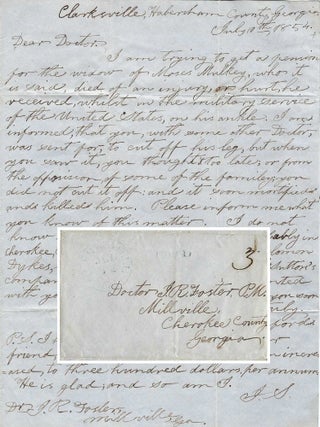 Clarksville, Habersham County, Georgia
July 10th, 1854.
Dear Doctor,
I am trying to get a pension
for the widow of Moses Walkey, who it
is said, died of an injury, or hurt, he
received, whilst in the military service
of the United States, on his ankle. I am
informed, that you, with some other Doctor,
was sent for, to cut off his leg, but when
you saw it, you thought too late, or from
the opposition of some of the family, you
did not cut it off, and it soon mortified
and killed him. Please inform me what
you know of this matter. I do not
know
Cherokee,
Dykes,
company
with
P.S. I
friend,
and, to three hundred dollars, per annum,
He is glad, and so am I.
J. S.
Dr. J. R. Foster,
Millville, Ga.
3
Doctor J. R. Foster, P.M.
Millville,
Cherokee County
Georgia